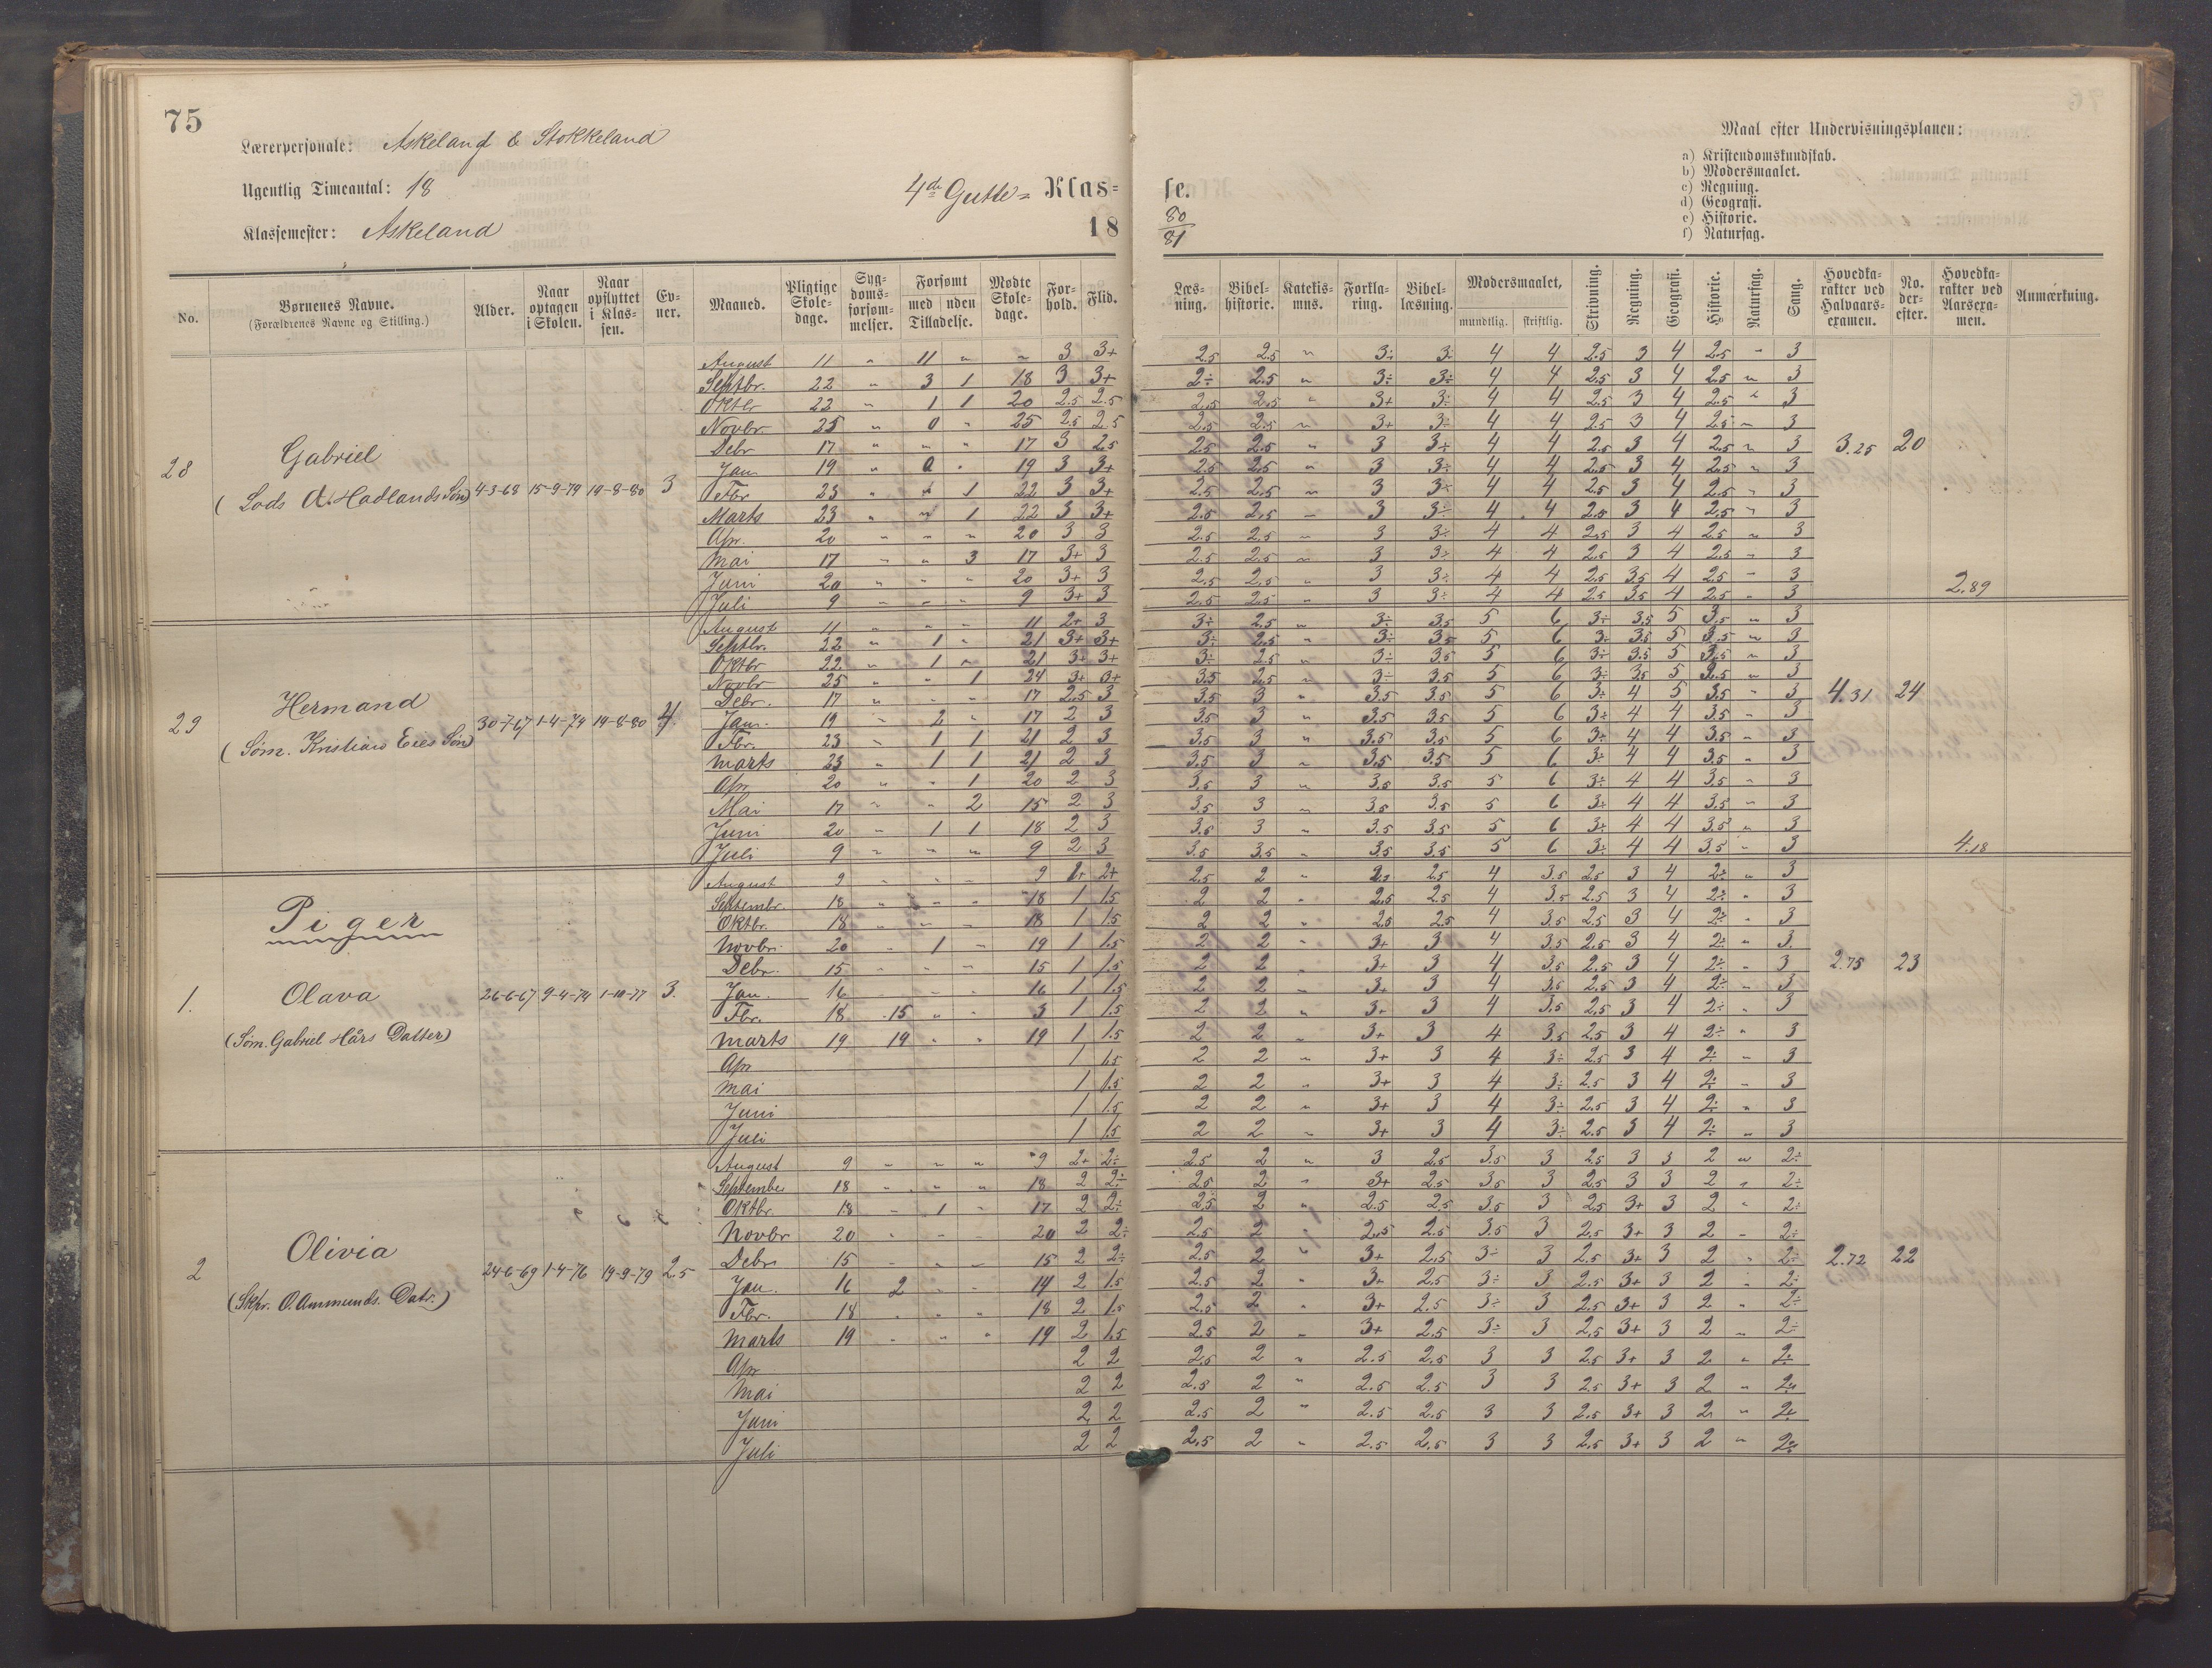 75
Lærerpersonale: Askeland & Stokkeland
Ugentlig Timeantal: 18
Klassemester: Askeland
4de Gutte= Klas=
18
se.
80
81
Maal efter Undervisningsplanen:
a) Kristendomskundskab.
b) Modersmaalet.
c) Regning.
d) Geografi.
e) Historie.
f) Naturfag.
No. Børnenes Navne. (Forældrenes Navne og Stilling.) Alder. Naar optagen i Skolen. Naar opflyttet i Klassen. Evner. Maaned. Pligtige Skoledage. Sygdomsforsømmelser. Forsømt med uden Tilladelse. Mødte Skoledage. Forhold. Flid.
Læsning. Bibelhistorie. Katekismus. Forklaring. Bibellæsning. Modersmaalet, mundtlig. skriftlig. Skrivning. Regning. Geografi. Historie. Naturfag. Sang. Hovedkarakter ved Halvaarsexamen. No. derefter. Hovedkarakter ved Aarsexamen. Anmærkning.
28 Gabriel
(Lods A. Hadlands Søn) 4-3-68 15-9-79 19-8-80 3
August 11 " 11 " " 3 3+ 2.5 2.5 " 3÷ 3÷ 4 4 2.5 3 4 2.5 " 3
Septbr. 22 " 3 1 18 3 3+ 2÷ 2.5 " 3÷ 3÷ 4 4 2.5 3 4 2.5 " 3
Oktbr 22 " 1 1 20 2.5 2.5 2.5 2.5 " 3+ 3÷ 4 4 2.5 3 4 2.5 " 3
Novbr 25 " 0 " 25 2.5 2.5 2.5 2.5 " 3+ 3÷ 4 4 2.5 3 4 2.5 " 3
Debr 17 " " " 17 3 2.5 2.5 2.5 " 3 3÷ 4 4 2.5 3 4 2.5 " 3 3.25 20
Jan 19 " 0 " 19 3 3+ 2.5 2.5 " 3 3÷ 4 4 2.5 3 4 2.5 " 3
Fbr 23 " " 1 22 3 3+ 2.5 2.5 " 3 3÷ 4 4 2.5 3 4 2.5 " 3
Marts 23 " " 1 22 3 3+ 2.5 2.5 " 3 3÷ 4 4 2.5 3 4 2.5 " 3
Apr. 20 " " " 20 3 3 2.5 2.5 " 3 3÷ 4 4 2.5 3 4 2.5 " 3
Mai 17 " " 3 17 3+ 3 2.5 2.5 " 3 3÷ 4 4 2.5 3 4 2.5 " 3
Juni 20 " " " 20 3+ 3 2.5 2.5 " 3 3÷ 4 4 2.5 3.5 4 2.5 " 3
Juli 9 " " " 9 3+ 3 2.5 2.5 " 3 3÷ 4 4 2.5 3.5 4 2.5 " 3 2.89
29 Hermand
(Søm. Kristian Eies Søn) 30-7-67 1-4-74 19-8-80 4
August 11 " " " 11 2+ 3 3÷ 2.5 " 3÷ 3.5 5 6 3÷ 3.5 5 3.5 " 3
Septbr. 22 " 1 " 21 3+ 3+ 3÷ 2.5 " 3÷ 3.5 5 6 3÷ 3.5 5 3.5 " 3
Oktbr 22 " 1 " 21 3+ 3+ 3÷ 2.5 " 3÷ 3.5 5 6 3÷ 3.5 5 3.5 " 3
Novbr 25 " " 1 24 3+ 3+ 3.5 2.5 " 3÷ 3.5 5 6 3÷ 3.5 5 3.5 " 3
Debr. 17 " " " 17 2.5 3 3.5 3 " 3.5 3.5 5 6 3÷ 4 5 3.5 " 3 4.31 24
Jan. 19 " 2 " 17 2 3 3.5 3 " 3.5 3.5 5 6 3÷ 4 4 3.5 " 3
Fbr. 23 " 1 1 21 2 3 3.5 3 " 3.5 3.5 5 6 3÷ 4 4 3.5 " 3
Marts 23 " 1 1 21 2 3 3.5 3 " 3.5 3.5 5 6 3÷ 4 4 3.5 " 3
Apr 20 " " 1 20 2 3 3.5 3 " 3.5 3.5 5 6 3÷ 4 4 3.5 " 3
Mai 17 " " 2 15 2 3 3.5 3 " 3.5 3.5 5 6 3÷ 4 4 3.5 " 3
Juni 20 " 1 1 18 2 3 3.5 3 " 3.5 3.5 5 6 3÷ 4 4 3.5 " 3
Juli 9 " " " 9 2 3 3.5 3.5 " 3.5 3.5 5 6 3÷ 4 4 3.5 " 3 4.18
Piger
1. Olava
(Søm. Gabriel Hårs Datter) 26-6-67 9-4-74 1-10-77 3.
August 9 " " " 9 1+ 2+ 2.5 2 " 2.5 2.5 4 3.5 2.5 3 4 2÷ " 3
Septembr. 18 " " " 18 1 1.5 2 2 " 2.5 2.5 4 3.5 2.5 3 4 2÷ " 3
Oktbr. 18 " " " 18 1 1.5 2 2 " 2.5 2.5 4 3.5 2.5 3 4 2÷ " 3
Novbr. 20 " 1 " 19 1 1.5 2 2 " 3+ 3 4 3.5 2.5 3 4 2÷ " 3.
Debr. 15 " " " 15 1 1.5 2 2 " 3+ 3 4 3.5 2.5 3 4 2÷ " 3 2.75 23
Jan. 16 " " " 16 1 1.5 2 2 " 3+ 3 4 3.5 2.5 3 4 2÷ " 3
Fbr. 18 15 " " 3 1 1.5 2 2 " 3+ 3 4 3.5 2.5 3 4 2÷ " 3
Marts 19 19 " " 19 1 1.5 2 2 " 3+ 3 4 3.5 2.5 3 4 2÷ " 3
Apr 1 1.5 2 2 " 3+ 3 4 3÷ 2.5 3 4 2÷ " 3
Mai 1 1.5 2 2 " 3+ 3 4 3÷ 2.5 3 4 2÷ " 3
Juni 1 1.5 2 2 " 3+ 3 4 3÷ 2.5 3 4 2÷ " 3
Juli 1 1.5 2 2 " 3+ 3 4 3÷ 2.5 3 4 2÷ " 3
2 Olivia
(Skpr. O. Ammunds. Datr.) 24-6-69 1-4-76 19-9-79 2.5
August 9 " " " 9 2+ 2÷ 2.5 2 " 3 2.5 3.5 3 2.5 3 3 2 " 2÷
September 18 " " " 18 2 2÷ 2.5 2 " 3+ 2.5 3.5 3 2.5 3 3 2 " 2÷
Oktbr. 18 " 1 " 17 2 2÷ 2.5 2 " 2.5 2.5 3.5 3 2.5 3+ 3 2 " 2÷
Novbr 20 " " " 20 2 2÷ 2.5 2 " 2.5 2.5 3.5 3 2.5 3+ 3 2 " 2÷
Debr 15 " " " 15 2 2÷ 2.5 2 " 3+ 2.5 3÷ 3 2.5 3+ 3 2 " 2÷ 2.72 22
Jan. 16 2 " " 14 2 1.5 2.5 2 " 3+ 2.5 3÷ 3 2.5 3+ 3 2 " 2÷
Fbr. 18 " " " 18 2 1.5 2.5 2 " 3+ 2.5 3÷ 3 2.5 3+ 3 2 " 2÷
Marts 19 " " " 19 2 1.5 2.5 2 " 3+ 2.5 3÷ 3 2.5 3+ 3 2 " 2÷
Apr 2 2 2.5 2 " 2.5 2.5 3 3 2.5 3+ 3 2 " 2÷
Mai 2 2 2.5 2 " 2.5 2.5 3 3 2.5 3+ 3 2 " 2÷
Juni 2 2 2.5 2 " 2.5 2.5 3 3 2.5 3+ 3 2 " 2÷
Juli 2 2 2.5 2 " 2.5 2.5 3 3 2.5 3+ 3 2 " 2÷